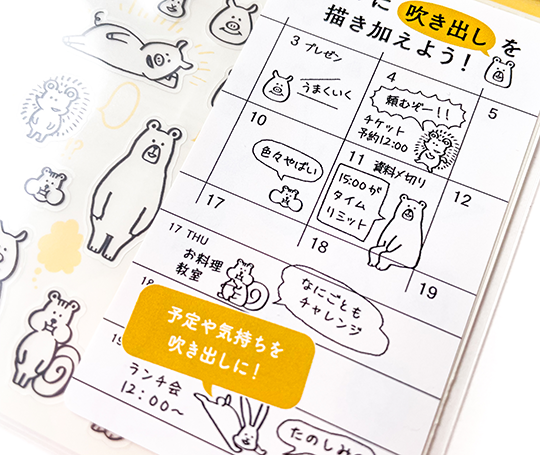 に 吹き出しを
描き加えよう！
3 プレゼン
うまくいく
4
頼むぞー！！
チケット
予約12:00
5
10
色々やばい
11 資料〆切り
15:00が
タイム
リミット
12
17
18
19
17 THU
お料理
教室
なにごとも
チャレンジ
18
予定や気持ちを
吹き出しに！
19
ランチ会
12:00~
たのしみ